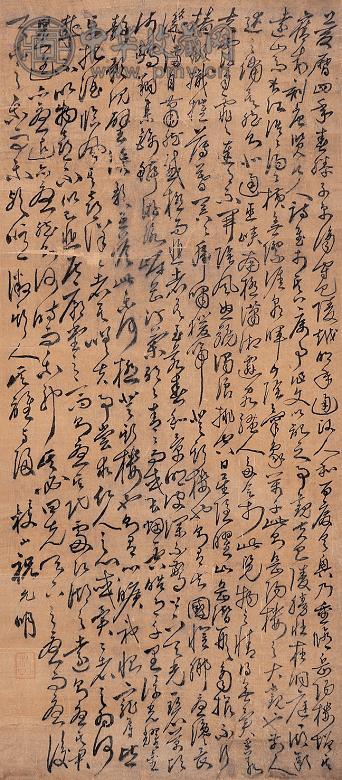 中华收藏网
慶曆四年春滕子京謫守巴陵越明年政通人和百廢具興乃重修岳陽樓增其
舊制刻唐賢今人詩賦于其上属予作文以記之予觀夫巴陵勝狀在洞庭一湖銜
遠山吞長江浩浩湯湯橫無際涯朝暉夕陰氣象萬千此則岳陽樓之大觀也前人
之述備矣然則北通巫峽南極瀟湘遷客騷人多會于此覽物之情得無異乎若
夫霪雨霏霏連月不開陰風怒號濁浪排空日星隱曜山岳潛形商旅不行
檣傾楫摧薄暮冥冥虎嘯猿啼登斯樓也則有去國懷鄉憂讒畏
譏滿目蕭然感極而悲者矣至若春和景明波瀾不驚上下天光一碧萬頃
沙鷗翔集錦鱗游泳岸芷汀蘭郁郁青青而或長烟一空皓月千里浮光耀金
靜影沉璧漁歌互答此樂何極登斯樓也則有心曠神怡寵辱皆
忘把酒臨風其喜洋洋者矣嗟夫予嘗求古仁人之心或異二者之為何
哉不以物喜不以己悲居廟堂之高則憂其民處江湖之遠則憂其君
是進亦憂退亦憂然則何時而樂耶其必曰先天下之憂而憂後
天下之樂而樂歟噫微斯人吾誰與歸 枝山祝允明